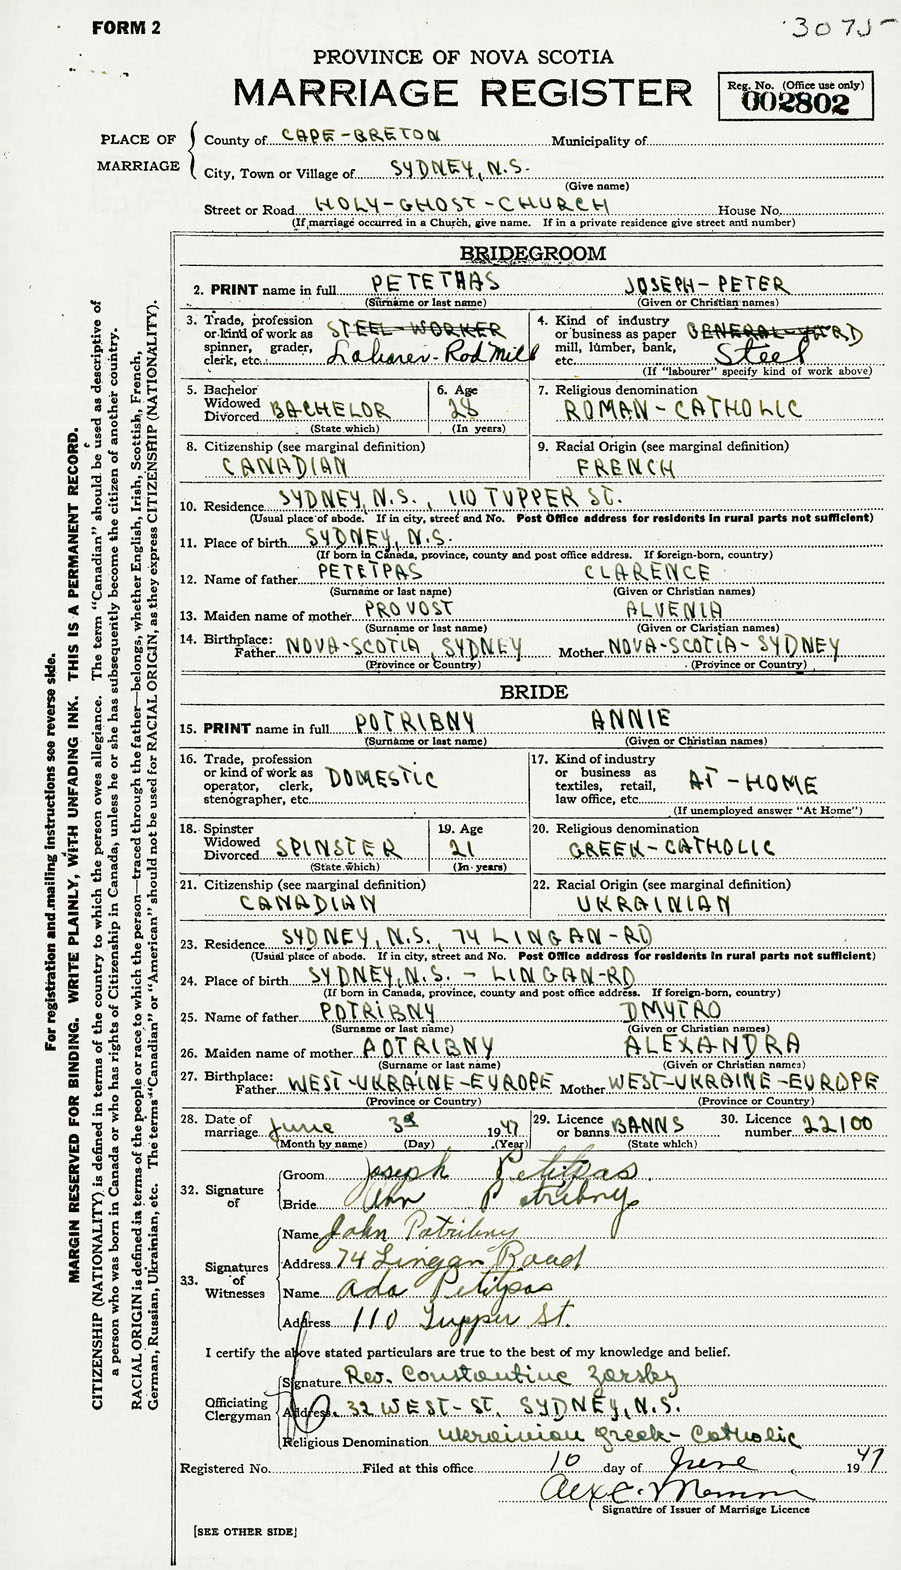 FORM 2
3075
PROVINCE OF NOVA SCOTIA
MARRIAGE REGISTER
Reg. No. (Office use only)
002802
PLACE OF MARRIAGE
County of CAPE-BRETON Municipality of
City, Town or Village of SYDNEY, N.S.
(Give name)
Street or Road HOLY-GHOST-CHURCH House No.
(If marriage occurred in a Church, give name. If in a private residence give street and number)
BRIDEGROOM
2. PRINT name in full PETETPAS JOSEPH-PETER
(Surname or last name) (Given or Christian names)
3. Trade, profession or kind of work as spinner, grader, clerk, etc. STEEL-WORKER Laborer-Rod Mill
4. Kind of industry or business as paper mill, lumber, bank, etc. GENERAL-YARD Steel
(If "labourer" specify kind of work above)
5. Bachelor Widowed Divorced BACHELOR
(State which)
6. Age 28
(In years)
7. Religious denomination
ROMAN-CATHOLIC
8. Citizenship (see marginal definition)
CANADIAN
9. Racial Origin (see marginal definition)
FRENCH
10. Residence SYDNEY, N.S., 110 TUPPER ST.
(Usual place of abode. If in city, street and No. Post Office address for residents in rural parts not sufficient)
11. Place of birth SYDNEY, N.S.
(If born in Canada, province, county and post office address. If foreign-born, country)
12. Name of father PETETPAS CLARENCE
(Surname or last name) (Given or Christian names)
13. Maiden name of mother PROVOST ALVENIA
(Surname or last name) (Given or Christian names)
14. Birthplace: Father NOVA-SCOTIA, SYDNEY Mother NOVA-SCOTIA-SYDNEY
(Province or Country) (Province or Country)
BRIDE
15. PRINT name in full POTRIBNY ANNIE
(Surname or last name) (Given or Christian names)
16. Trade, profession or kind of work as operator, clerk, stenographer, etc. DOMESTIC
17. Kind of industry or business as textiles, retail, law office, etc. AT-HOME
(If unemployed answer "At Home")
18. Spinster Widowed Divorced SPINSTER
(State which)
19. Age 21
(In years)
20. Religious denomination
GREEK-CATHOLIC
21. Citizenship (see marginal definition)
CANADIAN
22. Racial Origin (see marginal definition)
UKRAINIAN
23. Residence SYDNEY, N.S., 74 LINGAN-RD
(Usual place of abode. If in city, street and No. Post Office address for residents in rural parts not sufficient)
24. Place of birth SYDNEY, N.S. - LINGAN-RD
(If born in Canada, province, county and post office address. If foreign-born, country)
25. Name of father POTRIBNY DMYTRO
(Surname or last name) (Given or Christian names)
26. Maiden name of mother POTRIBNY ALEXANDRA
(Surname or last name) (Given or Christian names)
27. Birthplace: Father WEST-UKRAINE-EUROPE Mother WEST-UKRAINE-EUROPE
(Province or Country) (Province or Country)
28. Date of marriage June 3rd 1947
(Month by name) (Day) (Year)
29. Licence or banns BANNS
(State which)
30. Licence number 22100
32. Signature of
Groom Joseph Petitpas
Bride Ann Potribny
33. Signatures of Witnesses
Name John Potribny
Address 74 Lingan Road
Name Ada Petitpas
Address 110 Tupper St.
I certify the above stated particulars are true to the best of my knowledge and belief.
Officiating Clergyman
Signature Rev. Constantine Zarsky
Address 32 WEST-ST. SYDNEY, N.S.
Religious Denomination Ukrainian Greek-Catholic
Registered No. Filed at this office 10 day of June 1947
Signature of Issuer of Marriage Licence
[SEE OTHER SIDE]
For registration and mailing instructions see reverse side.
MARGIN RESERVED FOR BINDING. WRITE PLAINLY, WITH UNFADING INK. THIS IS A PERMANENT RECORD.
CITIZENSHIP (NATIONALITY) is defined in terms of the country to which the person owes allegiance. The term "Canadian" should be used as descriptive of
a person who was born in Canada or who has rights of Citizenship in Canada, unless he or she has subsequently become the citizen of another country.
RACIAL ORIGIN is defined in terms of the people or race to which the person—traced through the father—belongs, whether English, Irish, Scottish, French,
German, Russian, Ukrainian, etc. The terms "Canadian" or "American" should not be used for RACIAL ORIGIN, as they express CITIZENSHIP (NATIONALITY).